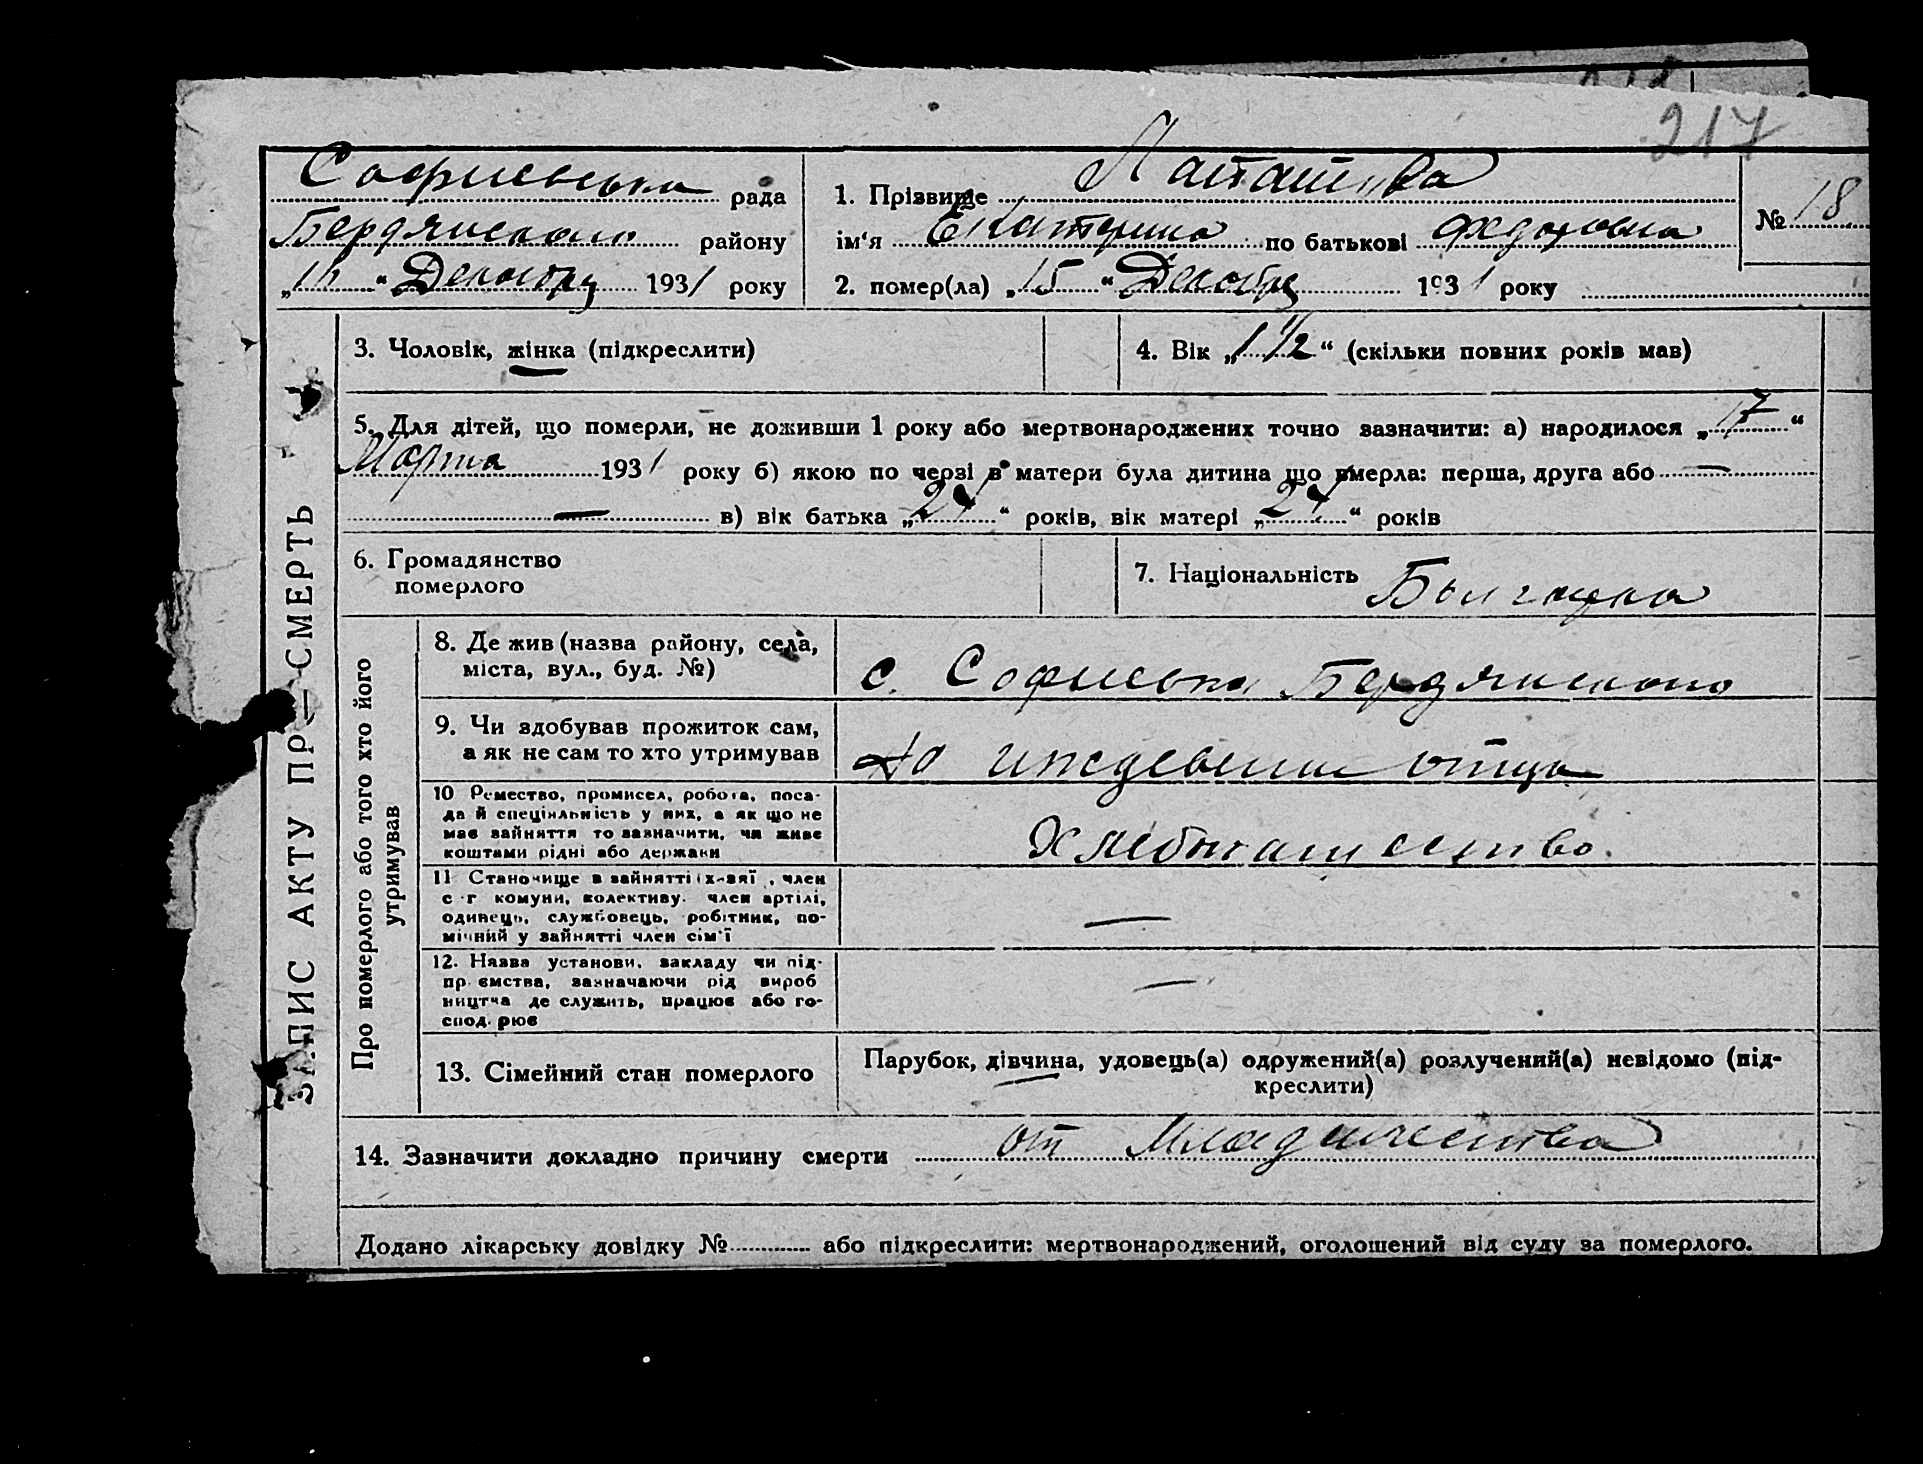 217
Софиевська рада
Бердянського району
„16“ Декабря 1931 року
1. Прізвище
ім‘я Екатерина по батькові
2. помер(ла) „15“ Декабря 1931 року
№ 18
ЗАПИС АКТУ ПРО СМЕРТЬ
3. Чоловік, жінка (підкреслити)
4. Вік „1 1/2“ (скільки повних років мав)
5. Для дітей, що померли, не доживши 1 року або мертвонароджених точно зазначити: а) народилося „17“
Марта 1931 року б) якою по черзі в матери була дитина що вмерла: перша, друга або —
— в) вік батька „24“ років, вік матері „24“ років
6. Громадянство
померлого
7. Національність Болгарка
Про померлого або того хто його
утримував
8. Де жив (назва району, села,
міста, вул., буд. №)
с. Софиевка Бердянского
9. Чи здобував прожиток сам,
а як не сам то хто утримував
На иждевении отца
10 Ремество, промисел, робота, поса-
да й спеціяльність у них, а як що не
має зайняття то зазначити, чи живе
коштами рідні або держави
Хлебопашество.
11 Становище в зайнятті член
с-г комуни, колективу. член артілі,
одинець, службовець, робітник, по-
мічний у зайнятті член сім‘ї
—
12. Назва установи, закладу чи під-
пр ємства, зазначаючи рід вироб
ництва де служить, працює або го-
спод. рює
—
13. Сімейний стан померлого
Парубок, дівчина, удовець(а) одружений(а) розлучений(а) невідомо (під-
креслити)
14. Зазначити докладно причину смерти от Младенчества
Додано лікарську довідку № або підкреслити: мертвонароджений, оголошений від суду за померлого.